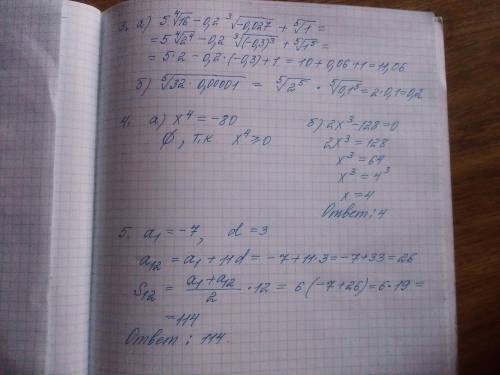 3. а) 5 ∜16 − 0,2 ∛−0,027 + ⁵√1 =
= 5 ∜2⁴ − 0,2 ∛(−0,3)³ + ⁵√1⁵ =
= 5·2 − 0,2·(−0,3)+1 = 10+0,06+1=11,06
б) ⁵√32·0,00001 = ⁵√2⁵ · ⁵√0,1⁵ = 2·0,1=0,2
4. а) x⁴ = −80
∅, т.к x⁴ ≥ 0
б) 2x³−128=0
2x³ = 128
x³ = 64
x³ = 4³
x = 4
Ответ: 4
5. a₁ = −7, d = 3
a₁₂ = a₁ + 11d = −7+11·3=−7+33=26
S₁₂ = (a₁+a₁₂)/2 · 12 = 6(−7+26)=6·19=
=114
Ответ: 114.